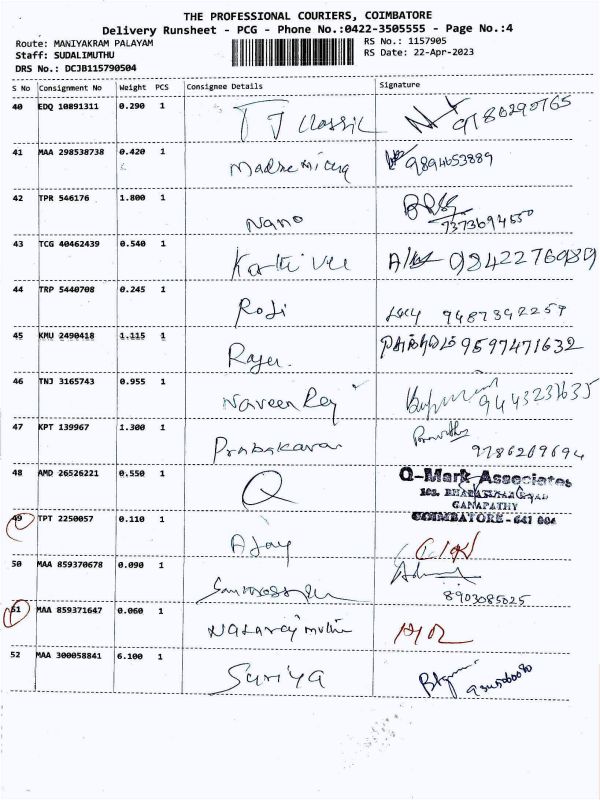 THE PROFESSIONAL COURIERS, COIMBATORE
Delivery Runsheet - PCG - Phone No.:0422-3505555 - Page No.:4
Route: MANIYAKRAM PALAYAM RS No.: 1157905
Staff: SUDALIMUTHU RS Date: 22-Apr-2023
DRS No.: DCJB115790504
S No Consignment No Weight PCS Consignee Details Signature
40 EDQ 10891311 0.290 1 TJ classic 9786290765
41 MAA 298538738 0.420 1 9894653889
42 TPR 546176 1.800 1 Nano 7373694550
43 TCG 40462439 0.540 1 Karthi vel 9842276989
44 TRP 5440708 0.245 1 Roji 9487392259
45 KMU 2490418 1.115 1 9597471632
46 TNJ 3165743 0.955 1 Naveen Raj 9443231635
47 KPT 139967 1.300 1 Prabakaran 9786209694
48 AMD 26526221 0.550 1 Q Q-Mark Associates
GANAPATHY
COIMBATORE - 641 006
49 TPT 2250057 0.110 1 Ajay
50 MAA 859370678 0.090 1 8903085025
51 MAA 859371647 0.060 1 Nataraj muthu
52 MAA 300058841 6.100 1 Suriya